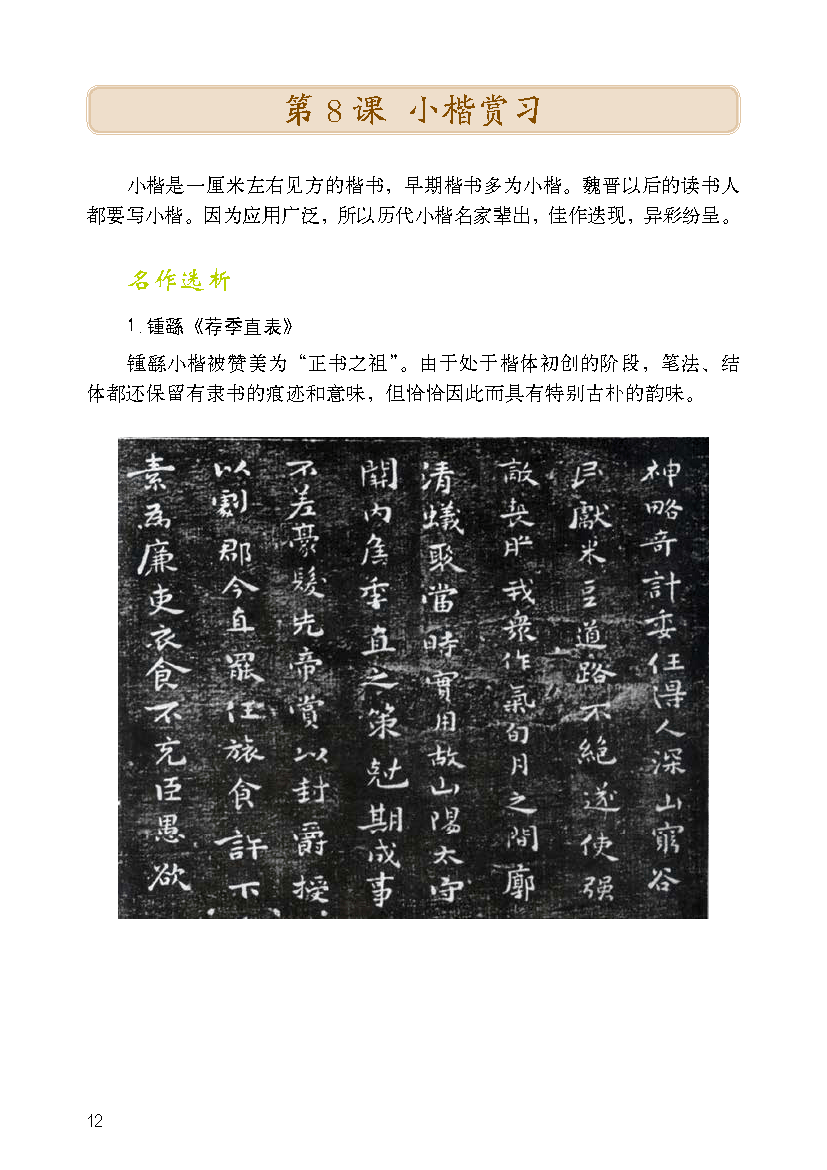 第 8 课 小楷赏习
小楷是一厘米左右见方的楷书，早期楷书多为小楷。魏晋以后的读书人
都要写小楷。因为应用广泛，所以历代小楷名家辈出，佳作迭现，异彩纷呈。
名作选析
1.锺繇《荐季直表》
锺繇小楷被赞美为“正书之祖”。由于处于楷体初创的阶段，笔法、结
体都还保留有隶书的痕迹和意味，但恰恰因此而具有特别古朴的韵味。
神略奇計委任得人深山窮谷
民獻米豆道路不絕遂使强
敵喪膽我衆作氣旬月之間廓
清蟻聚當時實用故山陽太守
關內侯季直之策尅期成事
不差豪髮先帝賞以封爵授
以劇郡今直罷任旅食許下
素為廉吏衣食不充臣愚欲
12